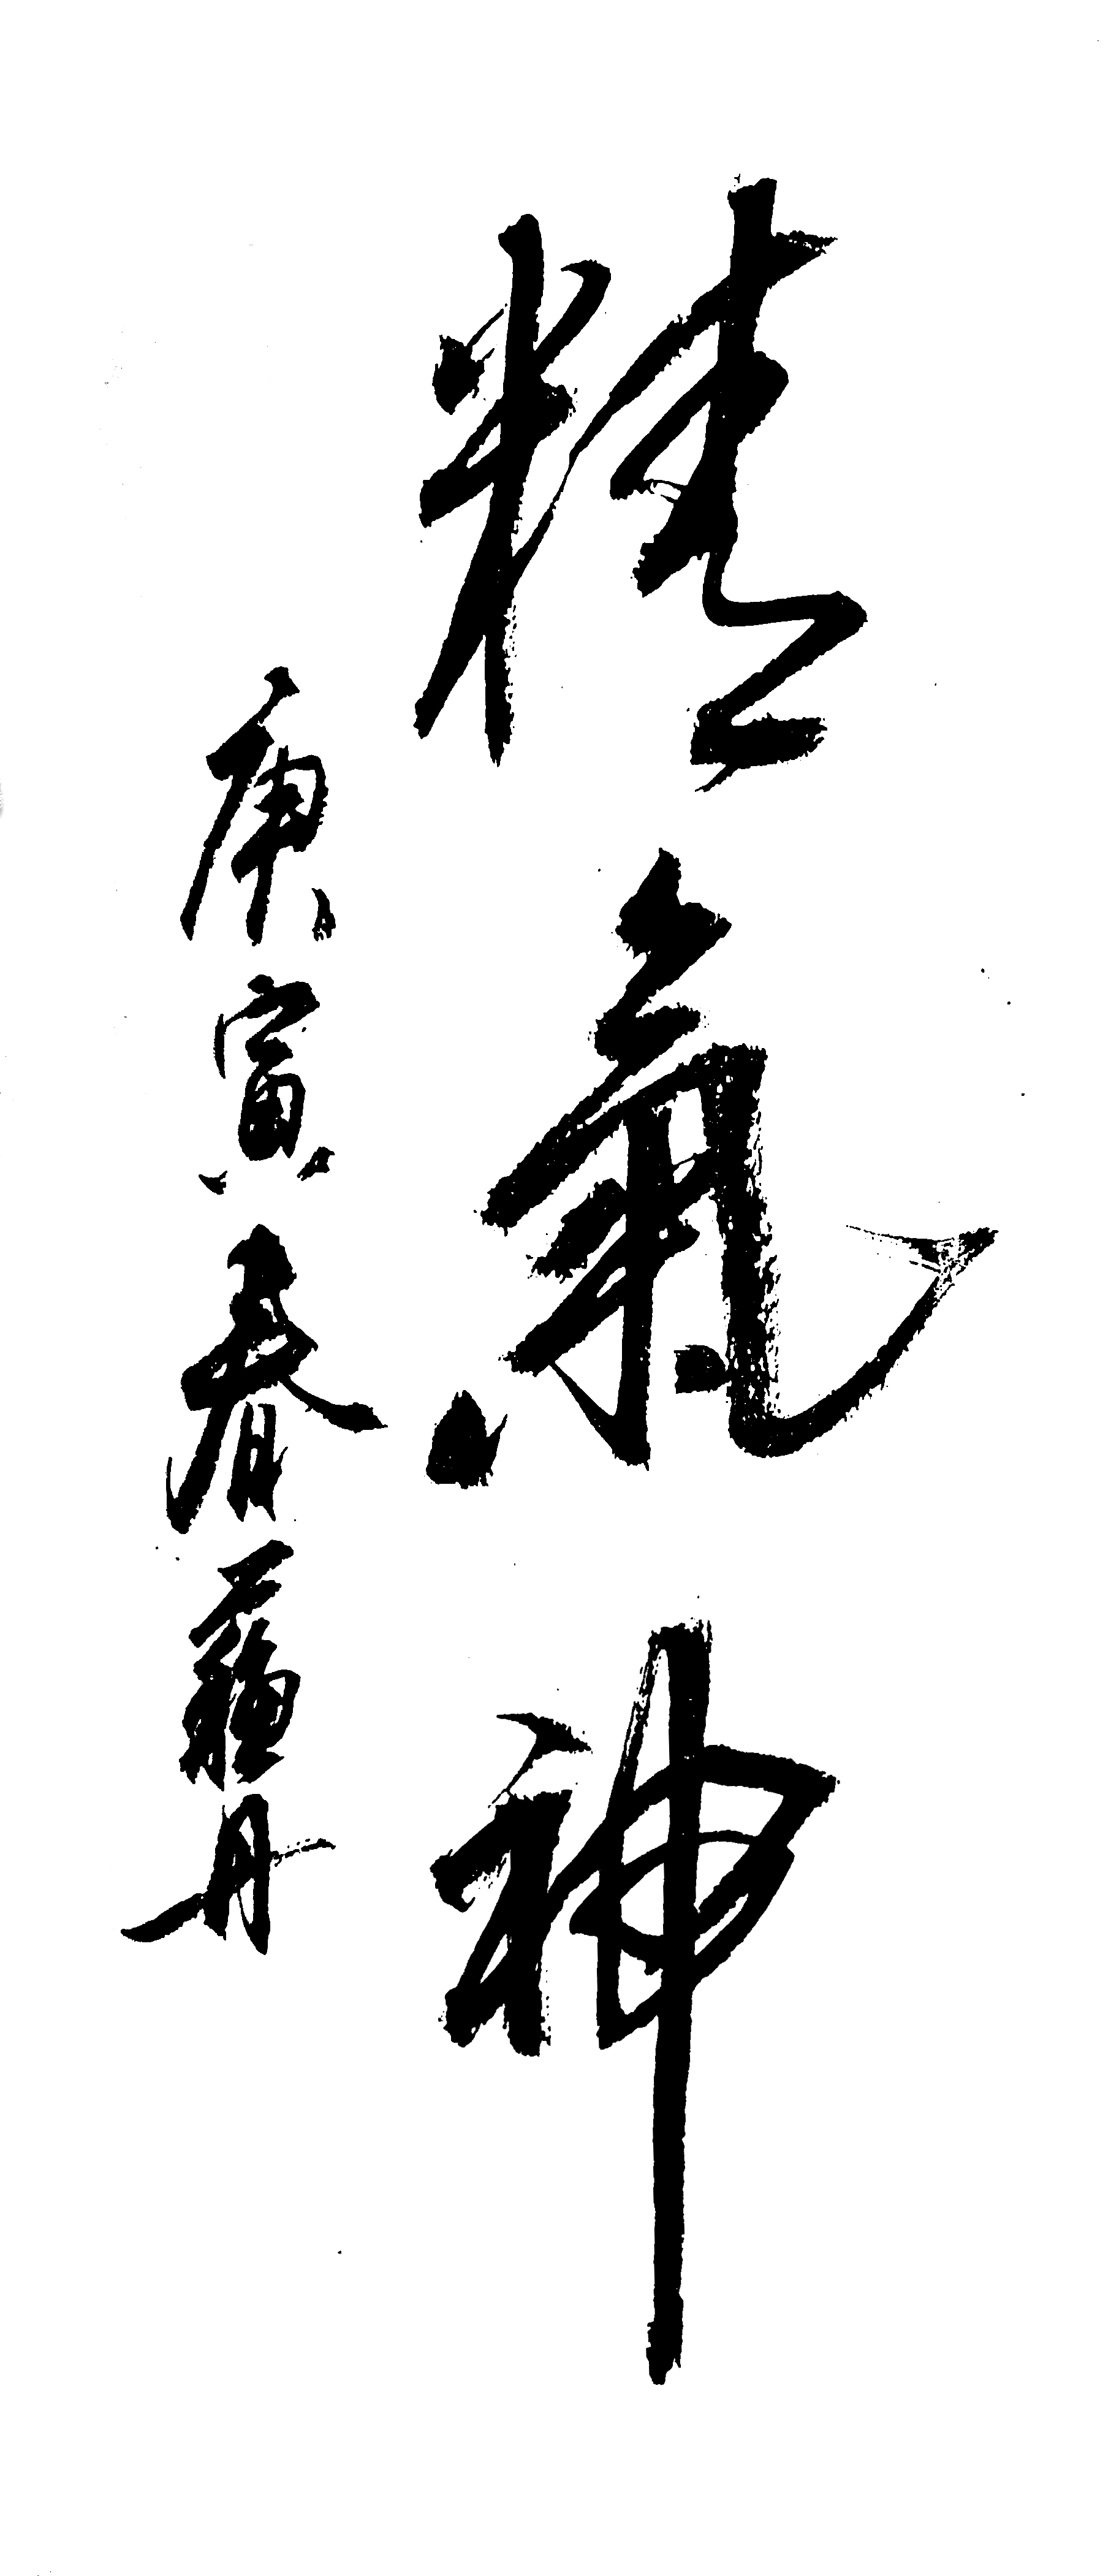 精氣神
庚寅春蘇丹